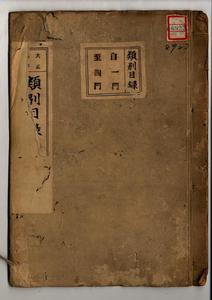 類別目録
自一門
至四門
大正
類別目録